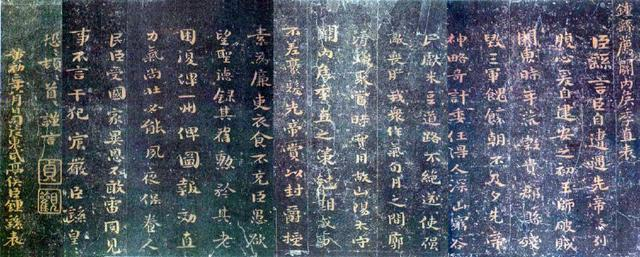 鍾繇薦關內侯季直表
臣繇言臣自遭遇先帝忝列
腹心爰自建安之初王師破賊
關東時年荒穀貴郡縣殘
毀三軍餽饟朝不及夕先帝
神略奇計委任得人深山窮谷
民獻米豆道路不絕遂使强
敵喪膽我眾作氣旬月之間廓
清蟻聚當時實用故山陽太守
關內侯季直之策剋期成事
不差豪髮先帝賞以封爵授
素為廉吏衣食不充臣愚欲
望聖德錄其舊勳矜其老
困復俾一州俾圖報効直
力氣尚壯必能夙夜保養人
民臣受國家異恩不敢雷同見
事不言干犯宸嚴臣繇皇
恐頓首謹言
貞觀
黃初二年八月日司徒東武亭侯臣鍾繇表